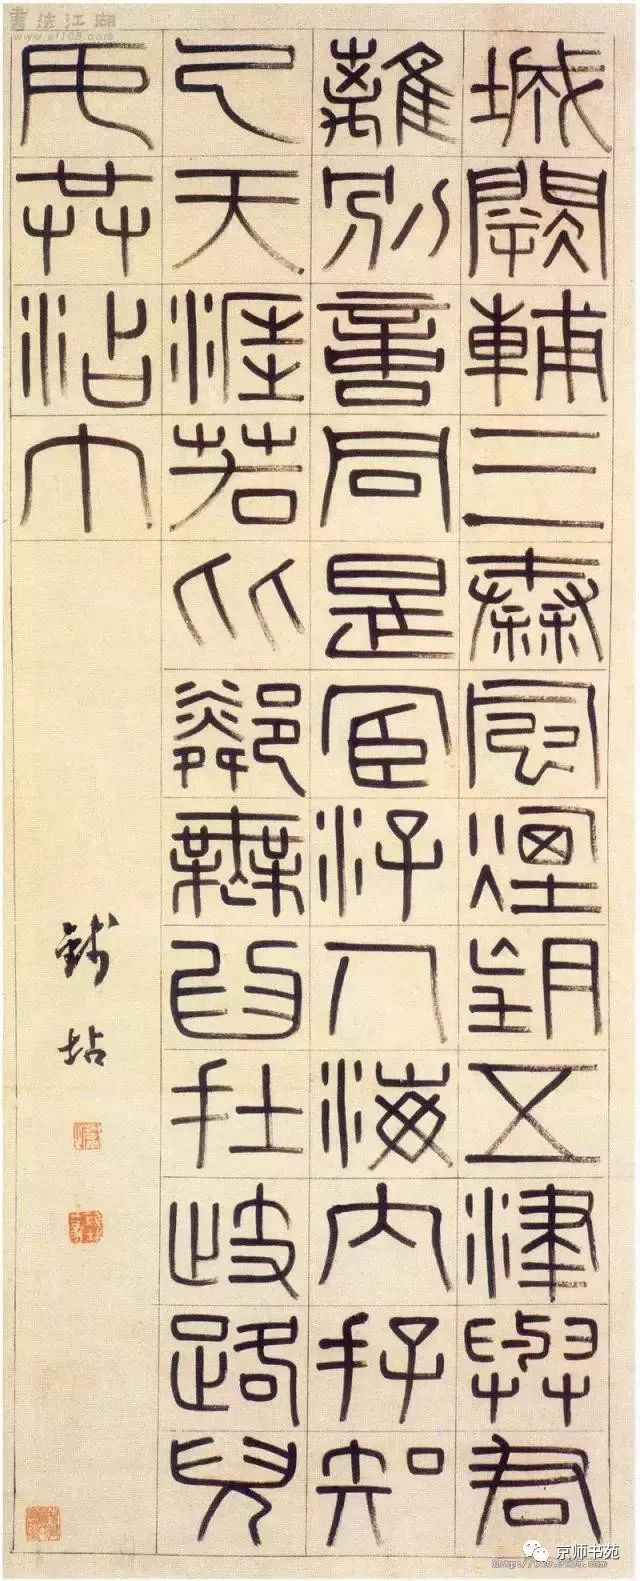 城闕輔三秦風煙望五津與君
離別意同是宦汓人海內存知
己天涯若比鄰無為在岐路兒
女共沾巾
錢坫
書法江湖
www.sf108.com
京师书苑